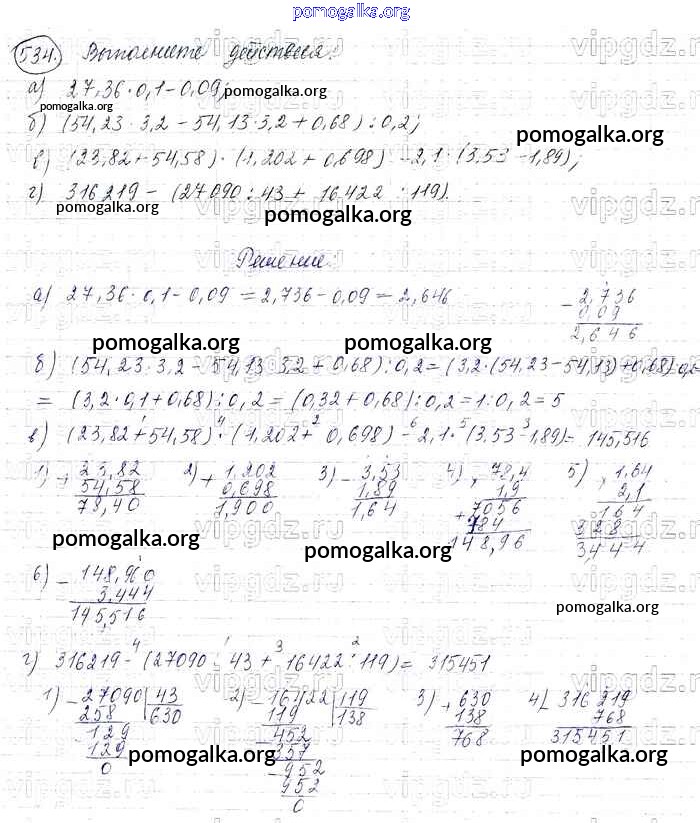 pomogalka.org
534. Выполните действия:
а) 27,36 · 0,1 - 0,09; pomogalka.org
pomogalka.org
б) (54,23 · 3,2 - 54,13 · 3,2 + 0,68) : 0,2; pomogalka.org
в) (23,82 + 54,58) · (1,202 + 0,698) - 2,1 · (3,53 - 1,89);
г) 316219 - (27090 : 43 + 16422 : 119).
pomogalka.org pomogalka.org
Решение:
а) 27,36 · 0,1 - 0,09 = 2,736 - 0,09 = 2,646
- 2,736
0,09
2,646
pomogalka.org pomogalka.org
б) (54,23 · 3,2 - 54,13 · 3,2 + 0,68) : 0,2 = (3,2 · (54,23 - 54,13) + 0,68) : 0,2
= (3,2 · 0,1 + 0,68) : 0,2 = (0,32 + 0,68) : 0,2 = 1 : 0,2 = 5
в) (23,82 + 54,58) · (1,202 + 0,698) - 2,1 · (3,53 - 1,89) = 145,516
1) + 23,82
54,58
78,40
2) + 1,202
0,698
1,900
3) - 3,53
1,89
1,64
4) × 78,4
1,9
+ 7056
784
148,96
5) × 1,64
2,1
164
328
3,444
pomogalka.org pomogalka.org
6) - 148,960
3,444
145,516
pomogalka.org
г) 316219 - (27090 : 43 + 16422 : 119) = 315451
1) - 27090 | 43
258 | 630
- 129
129
0
2) - 16422 | 119
119 | 138
- 452
357
- 952
952
0
3) + 630
138
768
4) - 316219
768
315451
pomogalka.org pomogalka.org pomogalka.org